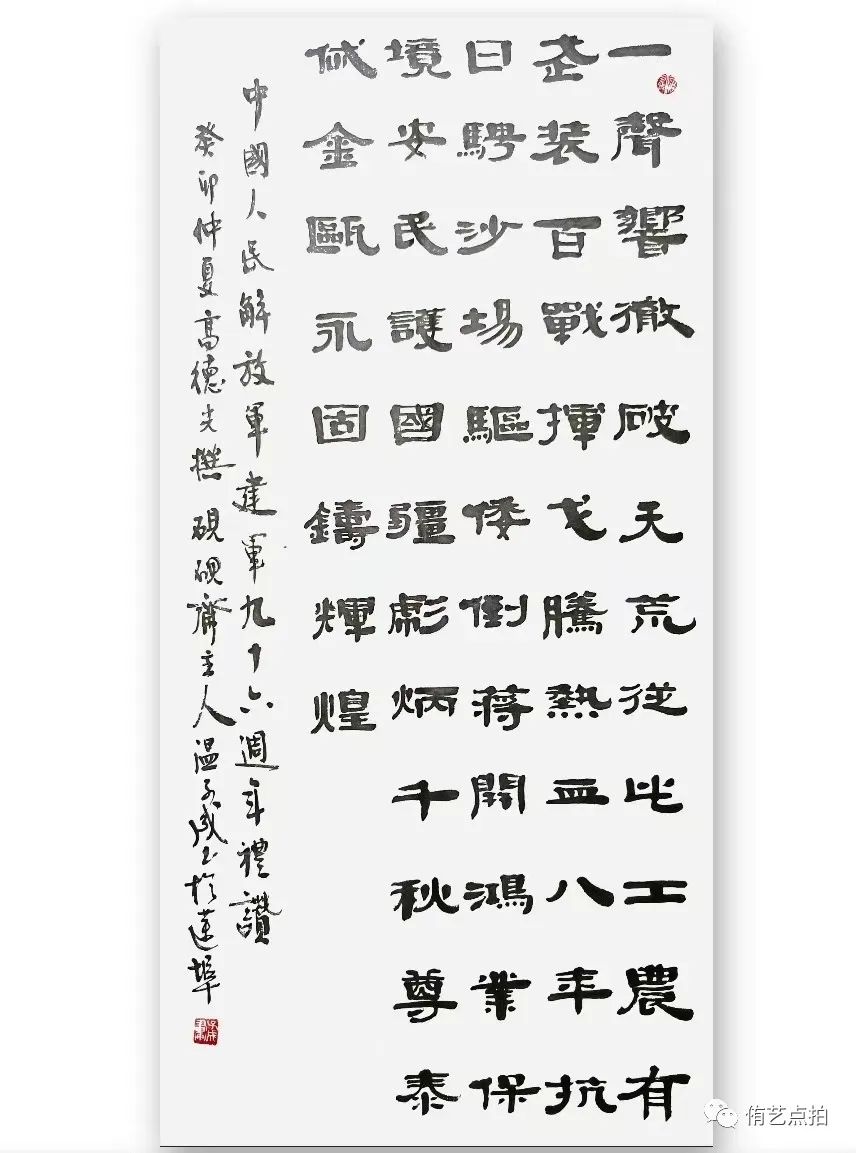 一聲響徹破天荒從此工農有
武装百戰揮戈騰熱血八年抗
日騁沙場驅倭倒蔣開鴻業保
境安民護國疆彪炳千秋尊泰
岱金甌永固鑄輝煌
中國人民解放軍建軍九十六週年禮讚
癸卯仲夏高德光撰硯硯齋主人溫子成书於蓮埠
侑艺点拍